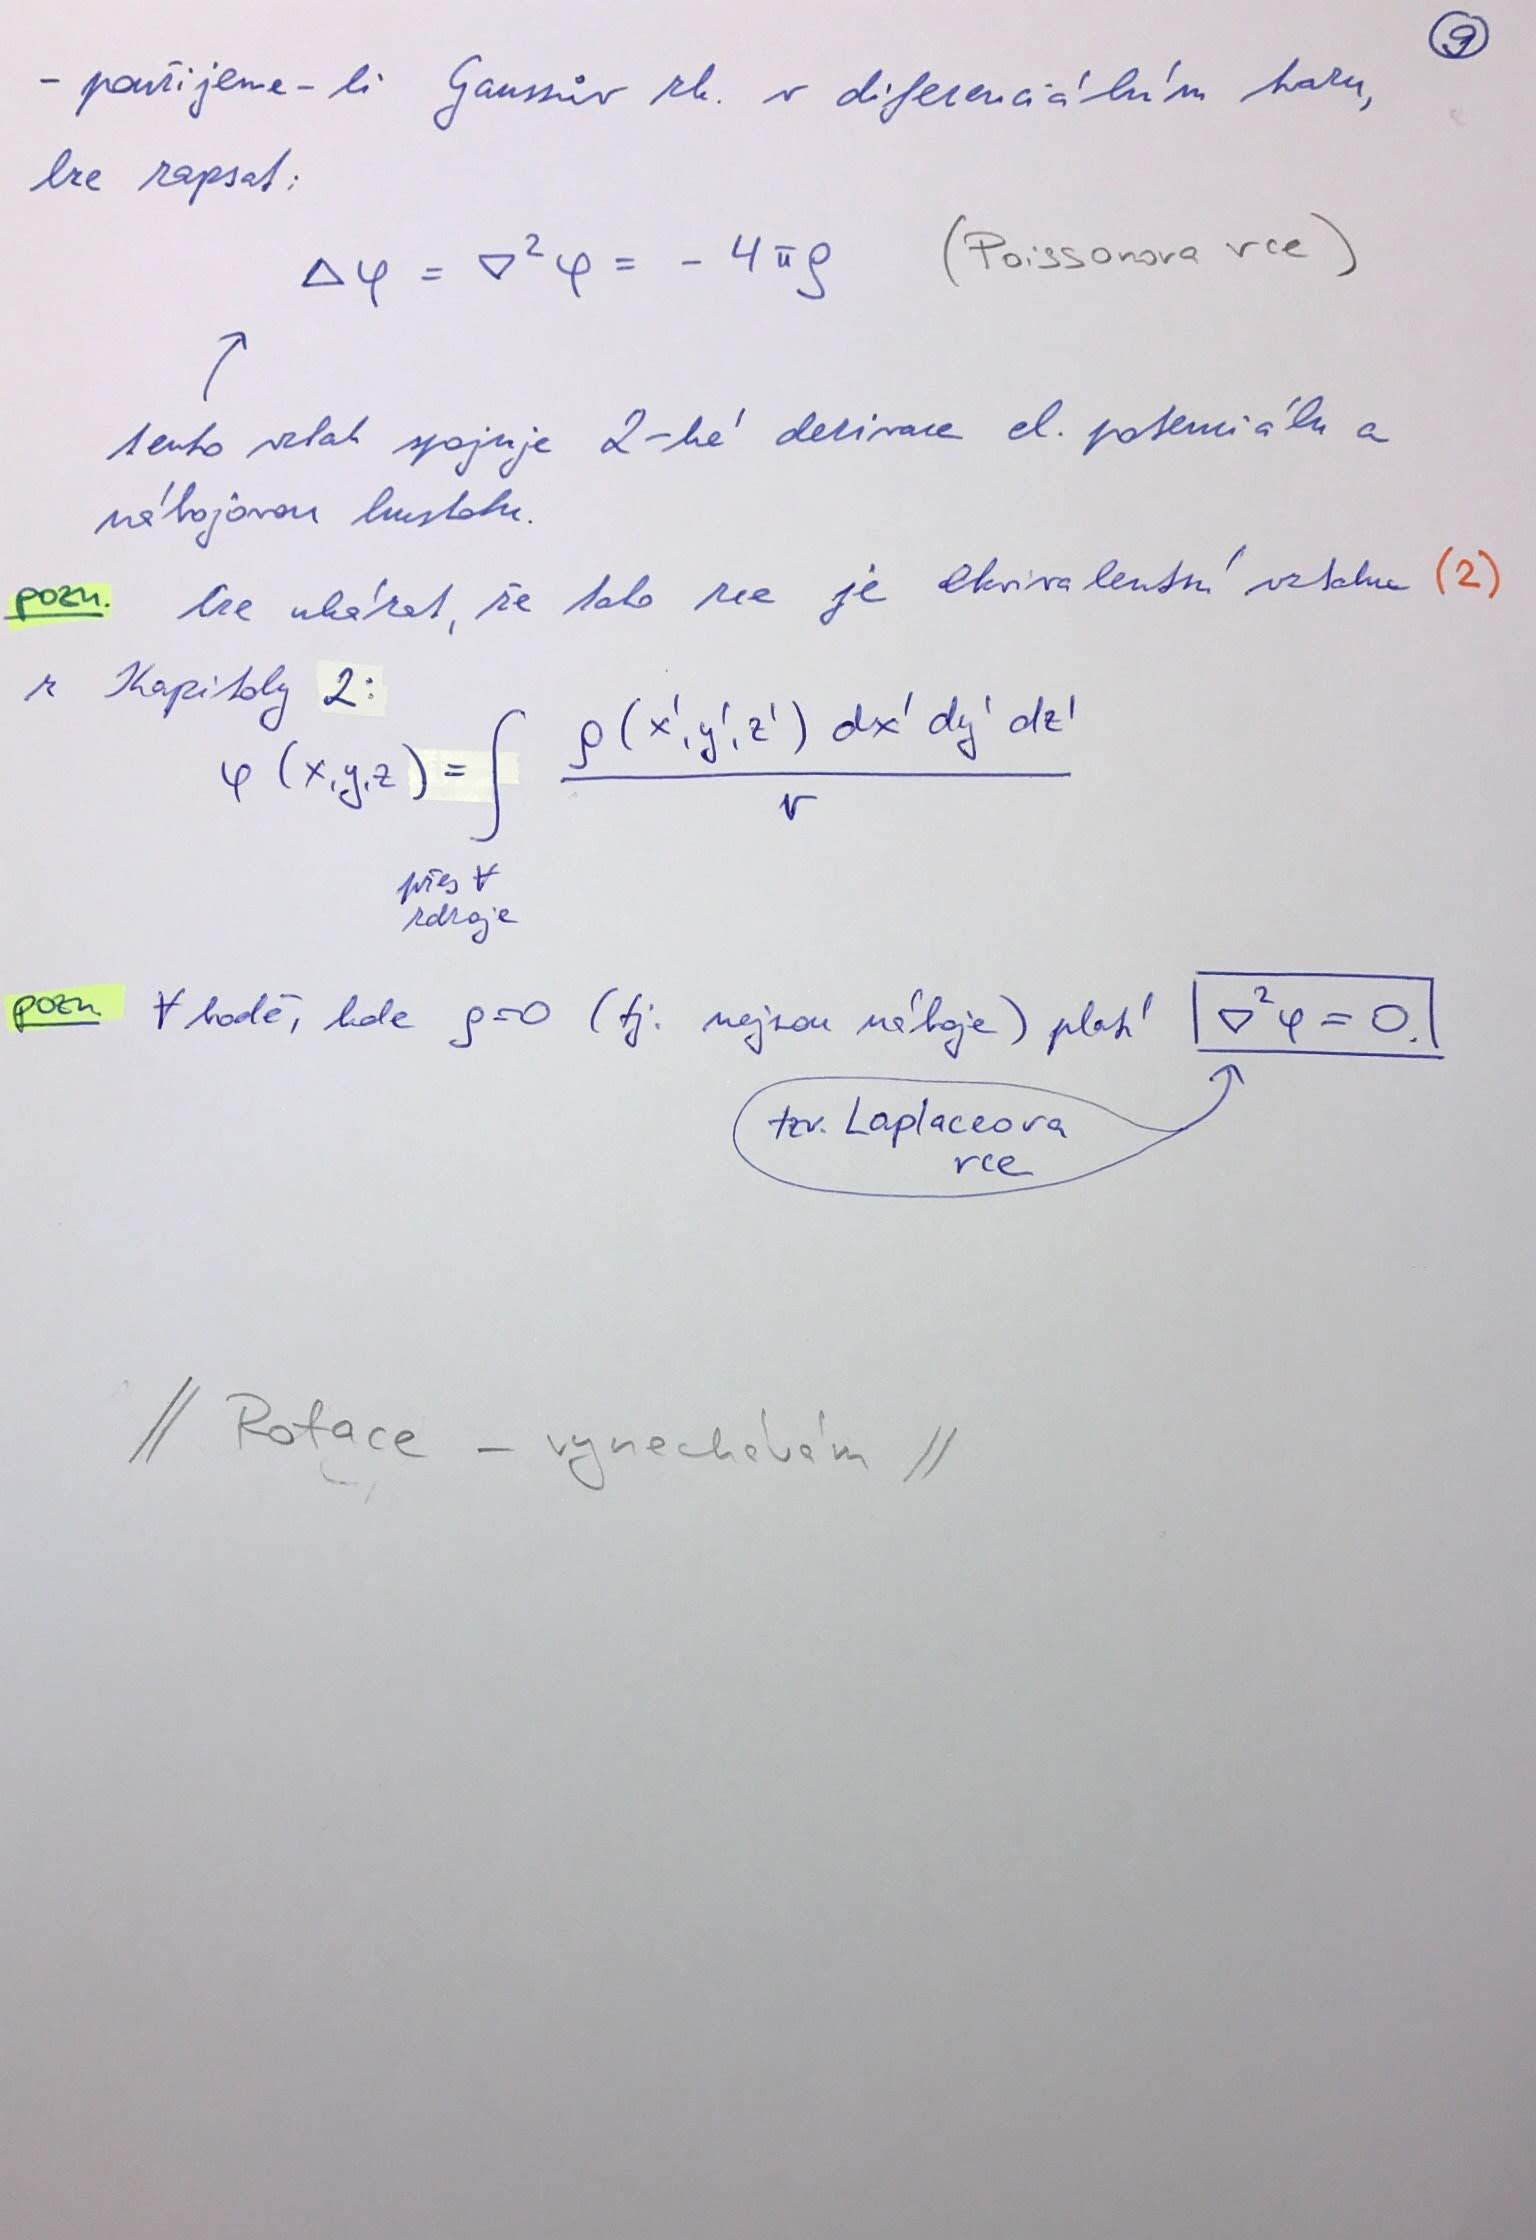 9
- použijeme-li Gaussův zk. v diferenciálním tvaru,
lze zapsat:
Δφ = ∇²φ = - 4πρ (Poissonova rce)
tento vztah spojuje 2-hé derivace el. potenciálu a
nábojovou hustotu.
pozn. lze ukázat, že tato rce je ekvivalentní vztahu (2)
z Kapitoly 2:
φ (x,y,z) = ∫ ρ(x',y',z') dx' dy' dz' / r
přes ∀
zdroje
pozn ∀ bodě, kde ρ=0 (tj. nejsou náboje) platí ∇²φ = 0.
tzv. Laplaceova
rce
// Rotace - vynechávám //